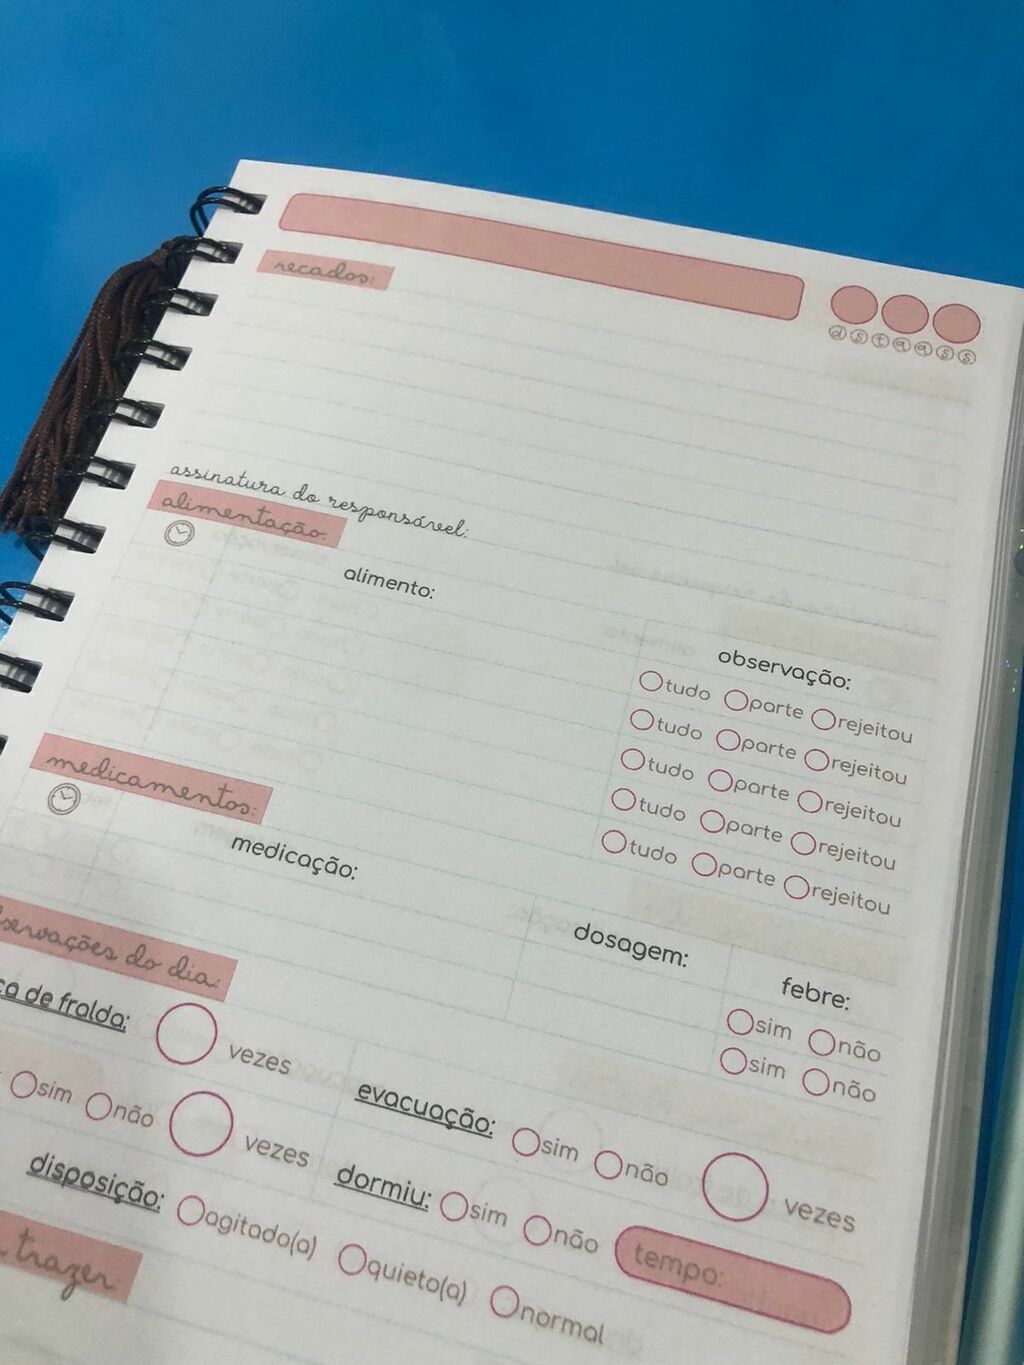 recados:
d s t q q s s
assinatura do responsável:
alimentação:
alimento: observação:
tudo parte rejeitou
tudo parte rejeitou
tudo parte rejeitou
tudo parte rejeitou
tudo parte rejeitou
medicamentos:
medicação: dosagem: febre:
sim não
sim não
do dia:
de fralda: vezes evacuação: sim não vezes
sim não vezes dormiu: sim não tempo:
disposição: agitado(a) quieto(a) normal
trazer: